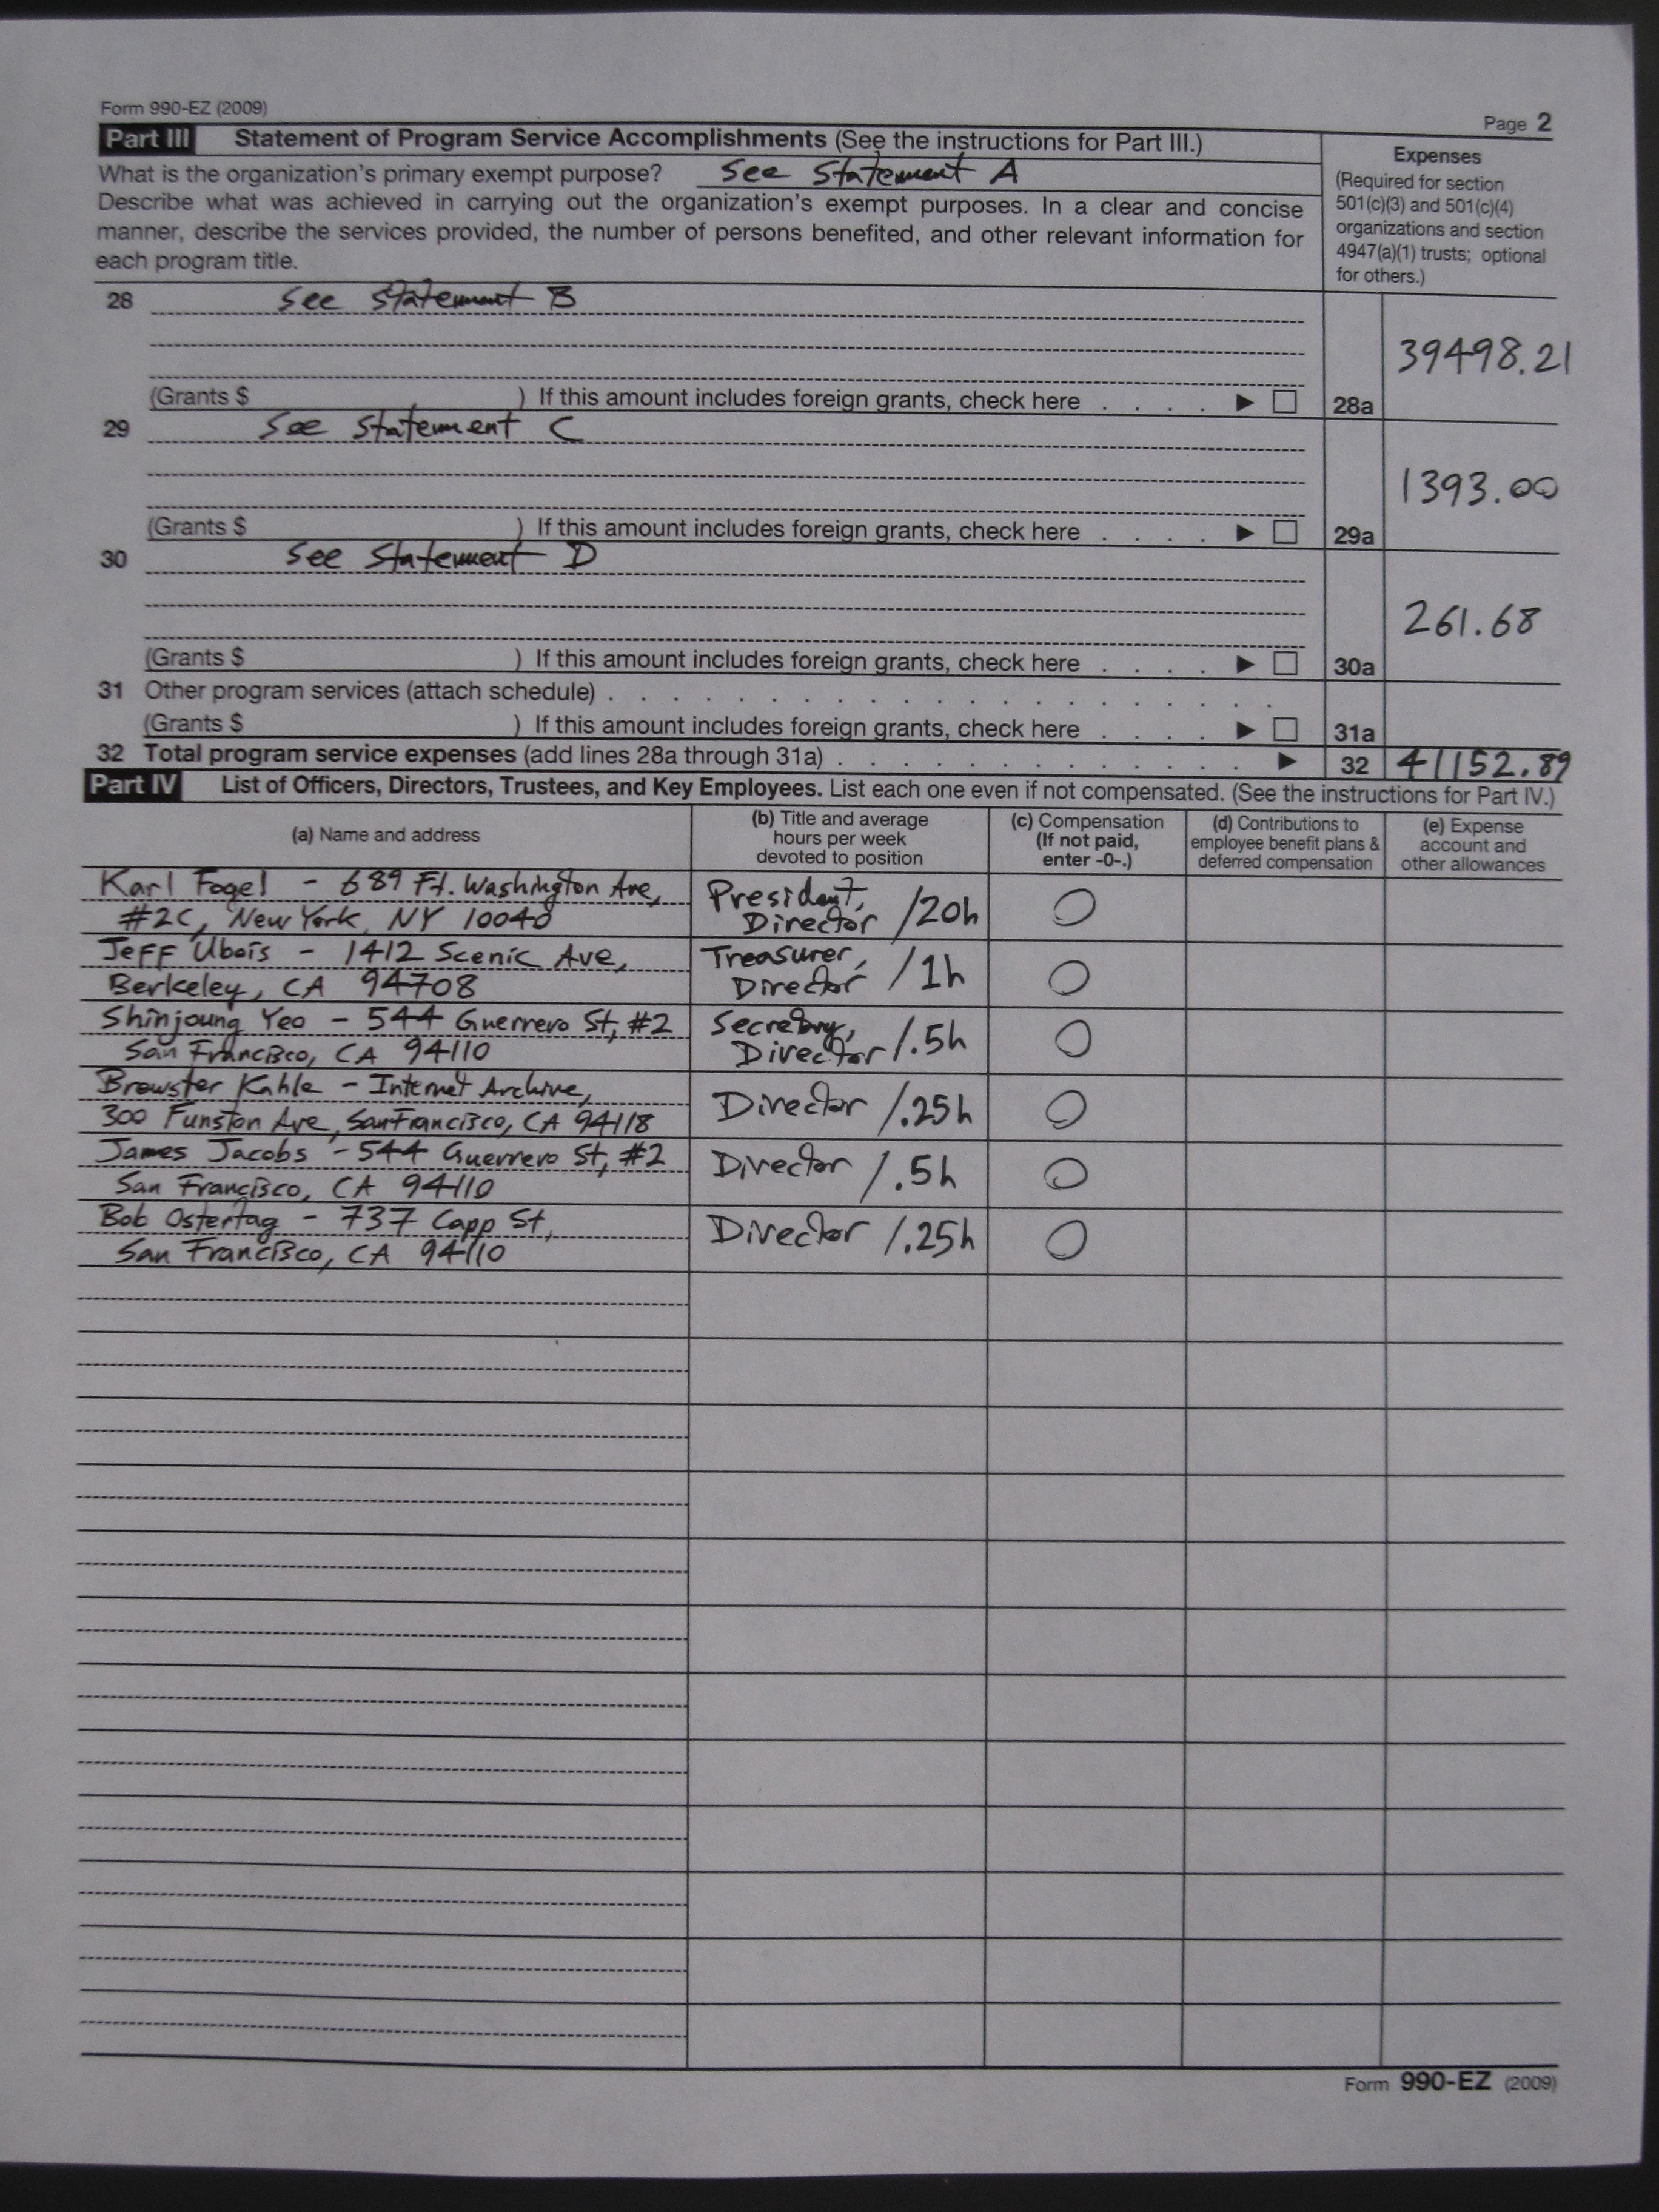 Form 990-EZ (2009)
Page 2
Part III Statement of Program Service Accomplishments (See the instructions for Part III.)
What is the organization's primary exempt purpose? See Statement A
Describe what was achieved in carrying out the organization's exempt purposes. In a clear and concise
manner, describe the services provided, the number of persons benefited, and other relevant information for
each program title.
Expenses
(Required for section
501(c)(3) and 501(c)(4)
organizations and section
4947(a)(1) trusts; optional
for others.)
28 See Statement B
39498.21
(Grants $ ) If this amount includes foreign grants, check here . . . . ▶ □ 28a
29 See Statement C
1393.00
(Grants $ ) If this amount includes foreign grants, check here . . . . ▶ □ 29a
30 See Statement D
261.68
(Grants $ ) If this amount includes foreign grants, check here . . . . ▶ □ 30a
31 Other program services (attach schedule) . . . . . . . . . . .
(Grants $ ) If this amount includes foreign grants, check here . . . . ▶ □ 31a
32 Total program service expenses (add lines 28a through 31a) . . . . . . . . . . ▶ 32 41152.89
Part IV List of Officers, Directors, Trustees, and Key Employees. List each one even if not compensated. (See the instructions for Part IV.)
(a) Name and address
(b) Title and average
hours per week
devoted to position
(c) Compensation
(If not paid,
enter -0-.)
(d) Contributions to
employee benefit plans &
deferred compensation
(e) Expense
account and
other allowances
Karl Fogel - 689 Ft. Washington Ave,
#2C, New York, NY 10040
President,
Director /20h
0
Jeff Ubois - 1412 Scenic Ave,
Berkeley, CA 94708
Treasurer,
Director /1h
0
Shinjoung Yeo - 544 Guerrero St, #2
San Francisco, CA 94110
Secretary,
Director /.5h
0
Brewster Kahle - Internet Archive,
300 Funston Ave, San Francisco, CA 94118
Director /.25h
0
James Jacobs - 544 Guerrero St, #2
San Francisco, CA 94110
Director /.5h
0
Bob Ostertag - 737 Capp St,
San Francisco, CA 94110
Director /.25h
0
Form 990-EZ (2009)